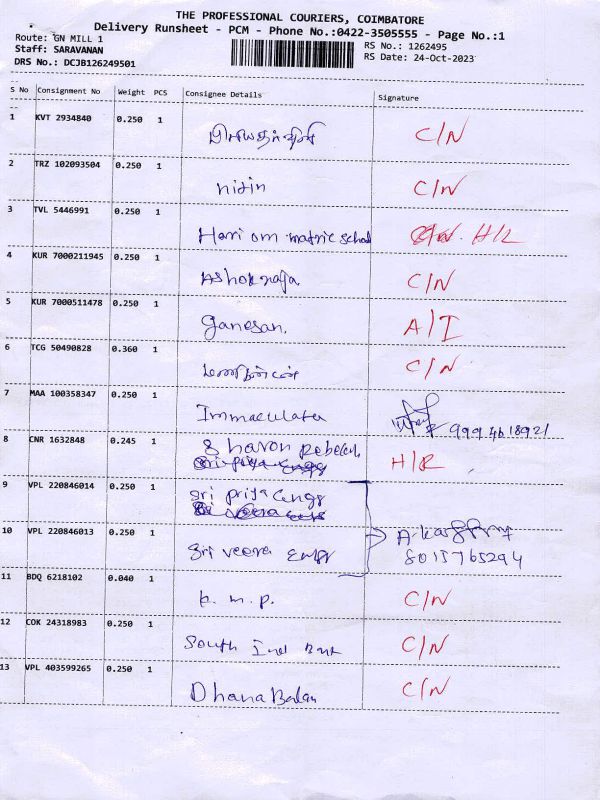 THE PROFESSIONAL COURIERS, COIMBATORE
Delivery Runsheet - PCM - Phone No.:0422-3505555 - Page No.:1
Route: GN MILL 1
Staff: SARAVANAN
DRS No.: DCJB126249501
RS No.: 1262495
RS Date: 24-Oct-2023
S No Consignment No Weight PCS Consignee Details Signature
1 KVT 2934840 0.250 1 C/N
2 TRZ 102093504 0.250 1 nitin C/N
3 TVL 5446991 0.250 1 Hari om matric school H/R
4 KUR 7000211945 0.250 1 Ashok raja C/N
5 KUR 7000511478 0.250 1 ganesan. A/I
6 TCG 50490828 0.360 1 C/N
7 MAA 100358347 0.250 1 Immaculater 9994618921
8 CNR 1632848 0.245 1 Sharon Rebecca H/R
9 VPL 220846014 0.250 1 Sri priya engg
10 VPL 220846013 0.250 1 Sri veera engg
8015765294
11 BDQ 6218102 0.040 1 p. m. p. C/N
12 COK 24318983 0.250 1 South Ind Bnk C/N
13 VPL 403599265 0.250 1 Dhana Balan C/N